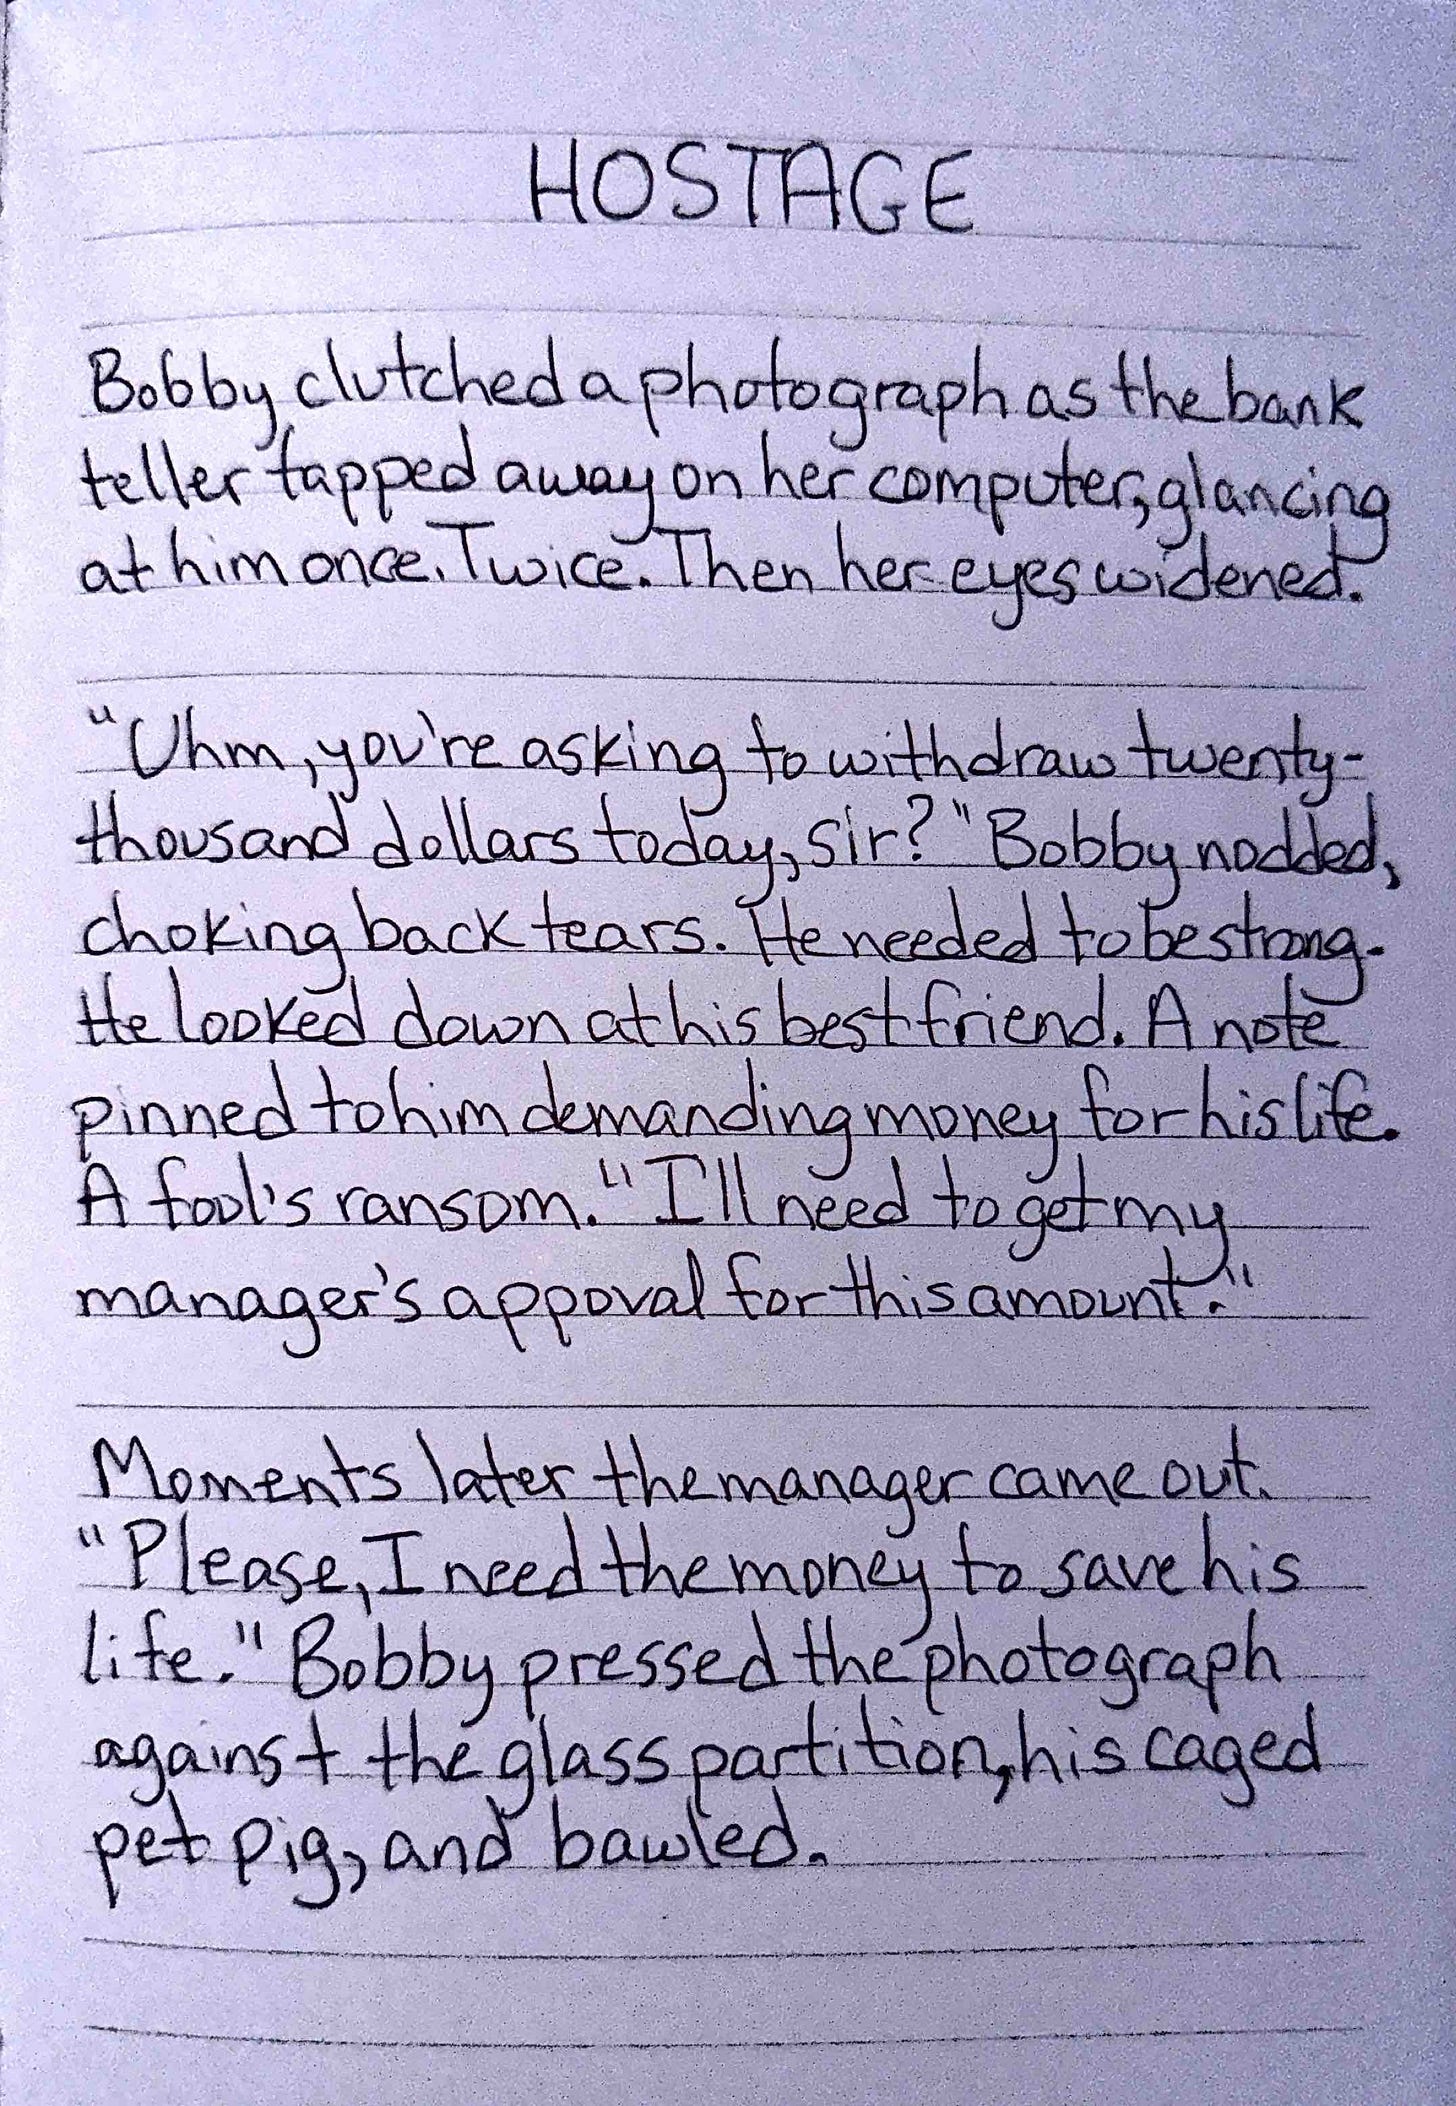 HOSTAGE
Bobby clutched a photograph as the bank
teller tapped away on her computer, glancing
at him once. Twice. Then her eyes widened.
"Uhm, you're asking to withdraw twenty-
thousand dollars today, sir?" Bobby nodded,
choking back tears. He needed to be strong.
He looked down at his best friend. A note
pinned to him demanding money for his life.
A fool's ransom. "I'll need to get my
manager's appoval for this amount."
Moments later the manager came out.
"Please, I need the money to save his
life." Bobby pressed the photograph
against the glass partition, his caged
pet pig, and bawled.